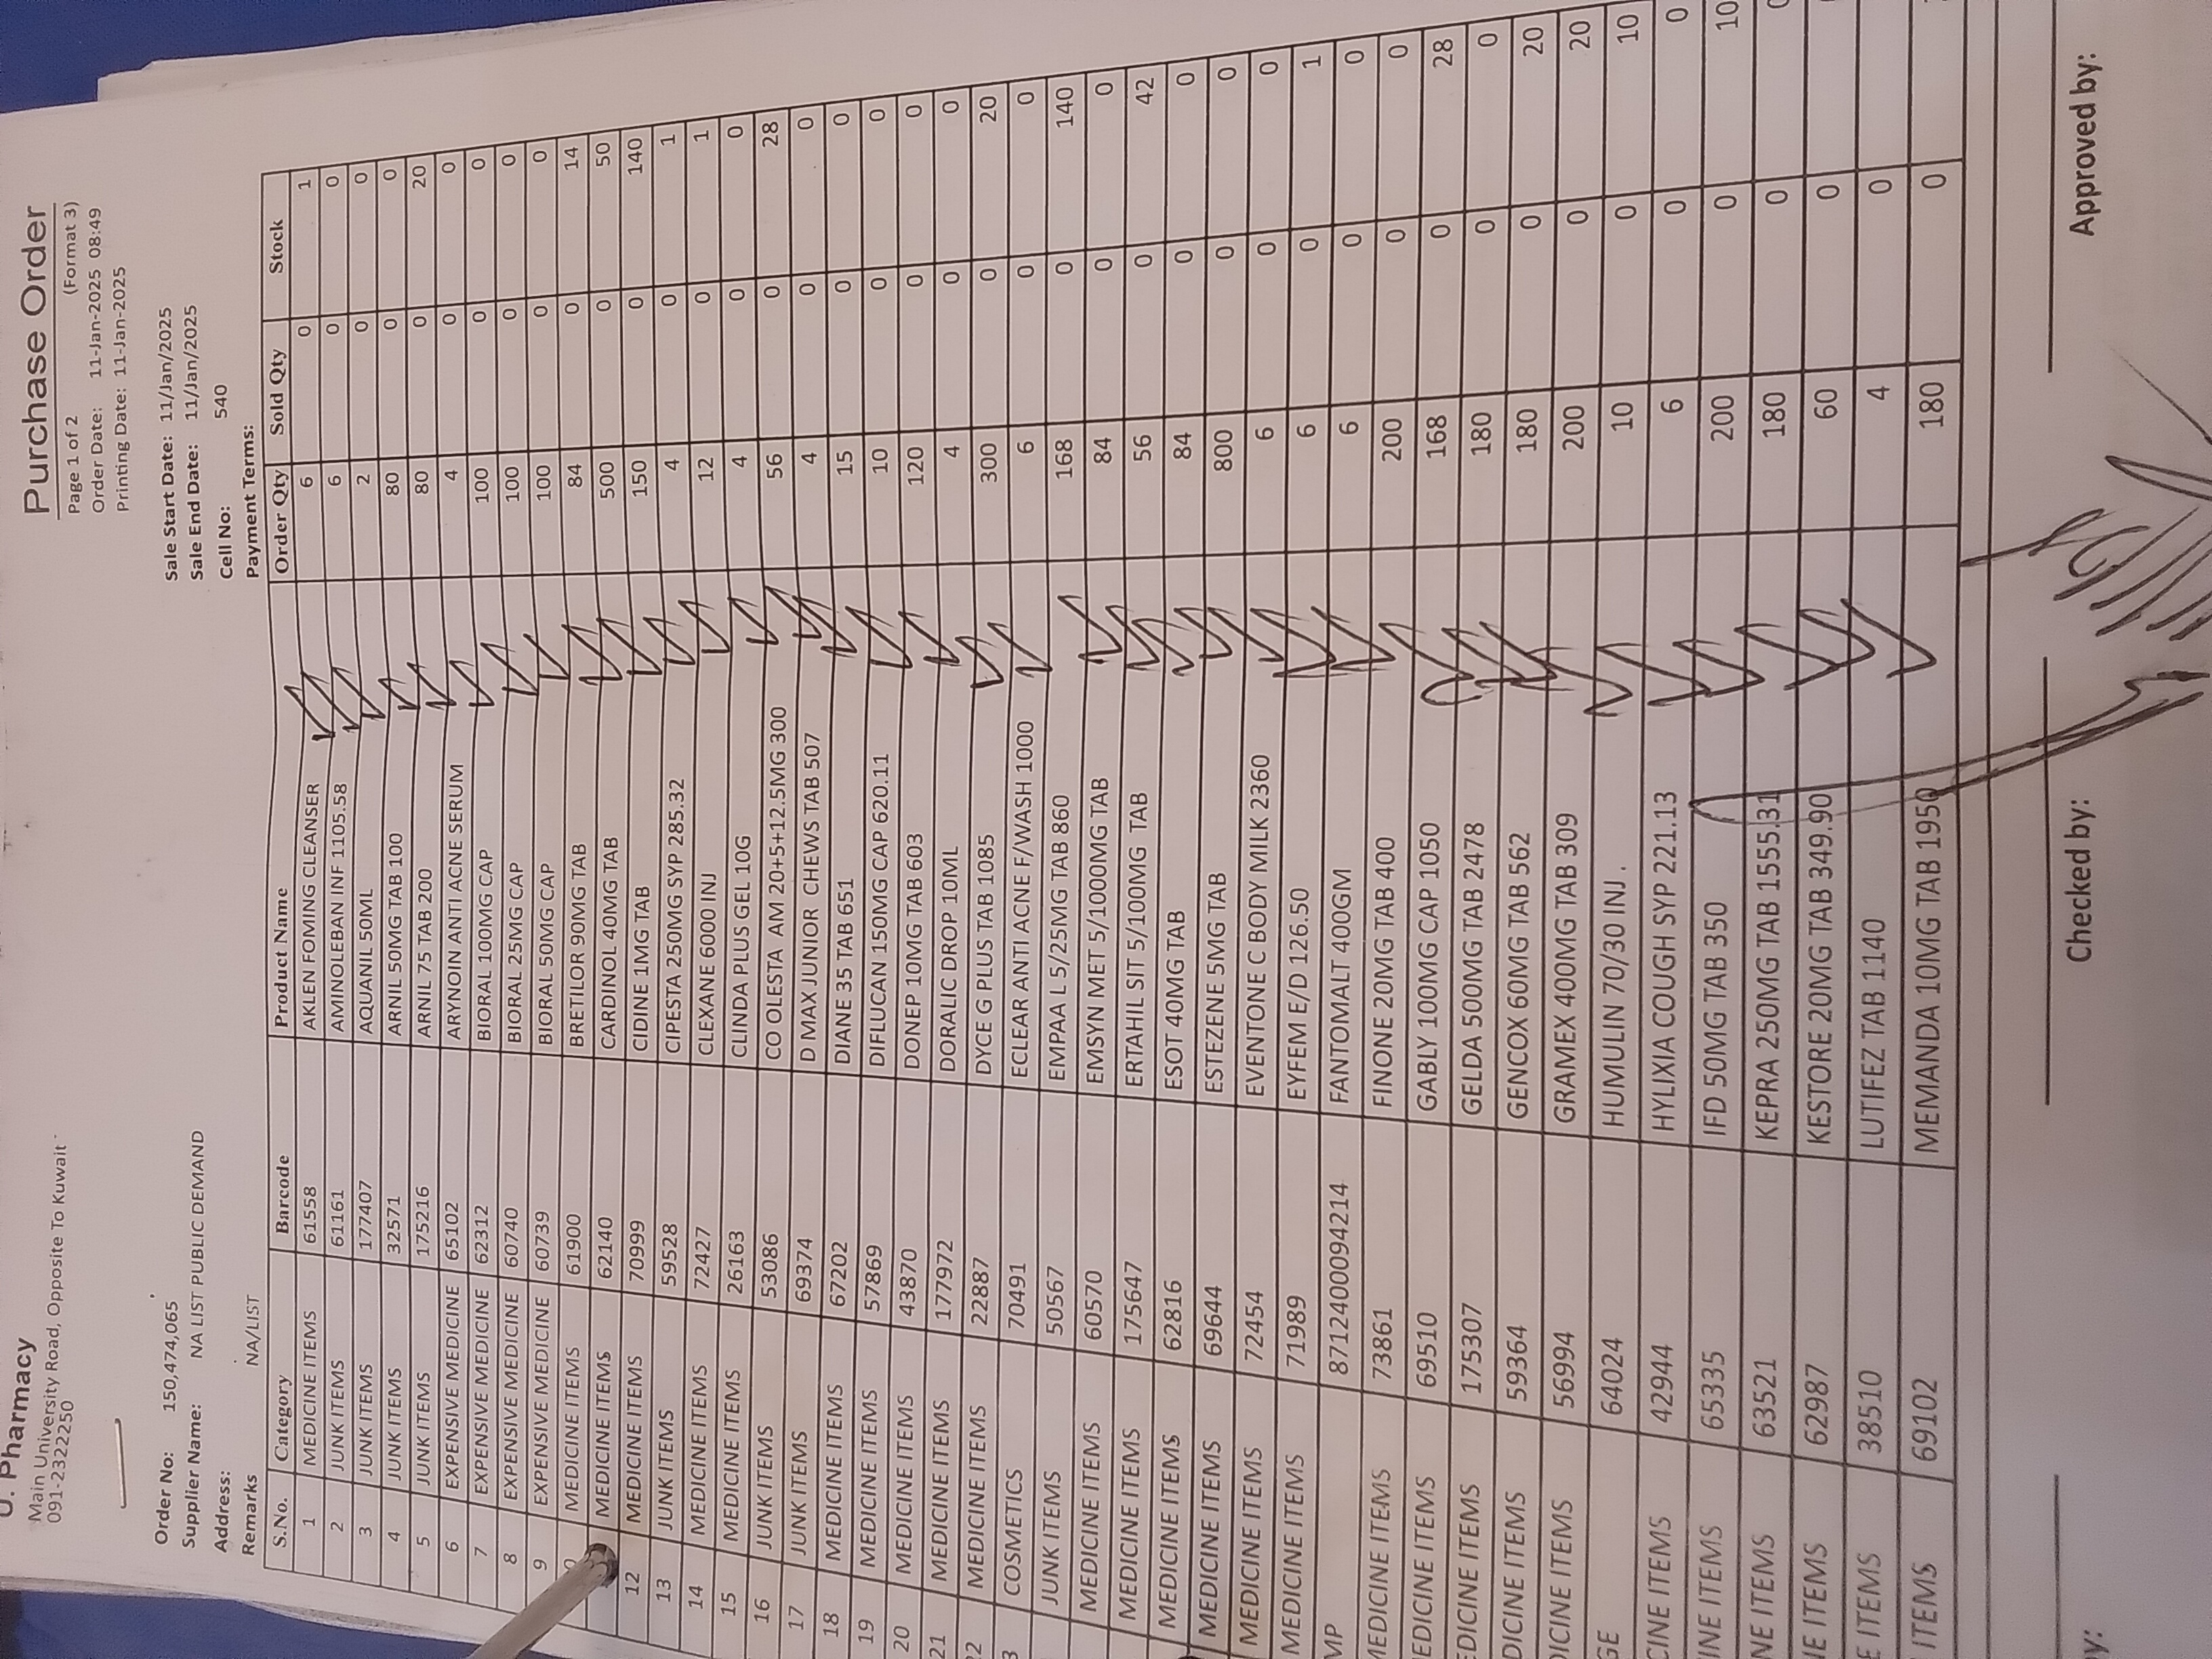 Pharmacy
Main University Road, Opposite To Kuwait
091-2322250
Purchase Order
Page 1 of 2 (Format 3)
Order Date: 11-Jan-2025 08:49
Printing Date: 11-Jan-2025
Order No: 150,474,065
Supplier Name: NA LIST PUBLIC DEMAND
Address:
Remarks NA/LIST
Sale Start Date: 11/Jan/2025
Sale End Date: 11/Jan/2025
Cell No: 540
Payment Terms:
S.No. Category Barcode Product Name Order Qty Sold Qty Stock
1 MEDICINE ITEMS 61558 AKLEN FOMING CLEANSER 6 0 1
2 JUNK ITEMS 61161 AMINOLEBAN INF 1105.58 6 0 0
3 JUNK ITEMS 177407 AQUANIL 50ML 2 0 0
4 JUNK ITEMS 32571 ARNIL 50MG TAB 100 80 0 0
5 JUNK ITEMS 175216 ARNIL 75 TAB 200 80 0 20
6 EXPENSIVE MEDICINE 65102 ARYNOIN ANTI ACNE SERUM 4 0 0
7 EXPENSIVE MEDICINE 62312 BIORAL 100MG CAP 100 0 0
8 EXPENSIVE MEDICINE 60740 BIORAL 25MG CAP 100 0 0
9 EXPENSIVE MEDICINE 60739 BIORAL 50MG CAP 100 0 0
MEDICINE ITEMS 61900 BRETILOR 90MG TAB 84 0 14
MEDICINE ITEMS 62140 CARDINOL 40MG TAB 500 0 50
12 MEDICINE ITEMS 70999 CIDINE 1MG TAB 150 0 140
13 JUNK ITEMS 59528 CIPESTA 250MG SYP 285.32 4 0 1
14 MEDICINE ITEMS 72427 CLEXANE 6000 INJ 12 0 1
15 MEDICINE ITEMS 26163 CLINDA PLUS GEL 10G 4 0 0
16 JUNK ITEMS 53086 CO OLESTA AM 20+5+12.5MG 300 56 0 28
17 JUNK ITEMS 69374 D MAX JUNIOR CHEWS TAB 507 4 0 0
18 MEDICINE ITEMS 67202 DIANE 35 TAB 651 15 0 0
19 MEDICINE ITEMS 57869 DIFLUCAN 150MG CAP 620.11 10 0 0
20 MEDICINE ITEMS 43870 DONEP 10MG TAB 603 120 0 0
21 MEDICINE ITEMS 177972 DORALIC DROP 10ML 4 0 0
22 MEDICINE ITEMS 22887 DYCE G PLUS TAB 1085 300 0 20
3 COSMETICS 70491 ECLEAR ANTI ACNE F/WASH 1000 6 0 0
JUNK ITEMS 50567 EMPAA L 5/25MG TAB 860 168 0 140
MEDICINE ITEMS 60570 EMSYN MET 5/1000MG TAB 84 0 0
MEDICINE ITEMS 175647 ERTAHIL SIT 5/100MG TAB 56 0 42
MEDICINE ITEMS 62816 ESOT 40MG TAB 84 0 0
MEDICINE ITEMS 69644 ESTEZENE 5MG TAB 800 0 0
MEDICINE ITEMS 72454 EVENTONE C BODY MILK 2360 6 0 0
MEDICINE ITEMS 71989 EYFEM E/D 126.50 6 0 1
MP 8712400094214 FANTOMALT 400GM 6 0 0
MEDICINE ITEMS 73861 FINONE 20MG TAB 400 200 0 0
EDICINE ITEMS 69510 GABLY 100MG CAP 1050 168 0 28
EDICINE ITEMS 175307 GELDA 500MG TAB 2478 180 0 0
DICINE ITEMS 59364 GENCOX 60MG TAB 562 180 0 20
DICINE ITEMS 56994 GRAMEX 400MG TAB 309 200 0 20
GE 64024 HUMULIN 70/30 INJ . 10 0 10
CINE ITEMS 42944 HYLIXIA COUGH SYP 221.13 6 0 0
INE ITEMS 65335 IFD 50MG TAB 350 200 0 10
NE ITEMS 63521 KEPRA 250MG TAB 1555.31 180 0 0
NE ITEMS 62987 KESTORE 20MG TAB 349.90 60 0
E ITEMS 38510 LUTIFEZ TAB 1140 4 0
ITEMS 69102 MEMANDA 10MG TAB 1950 180 0
y: Checked by: Approved by: